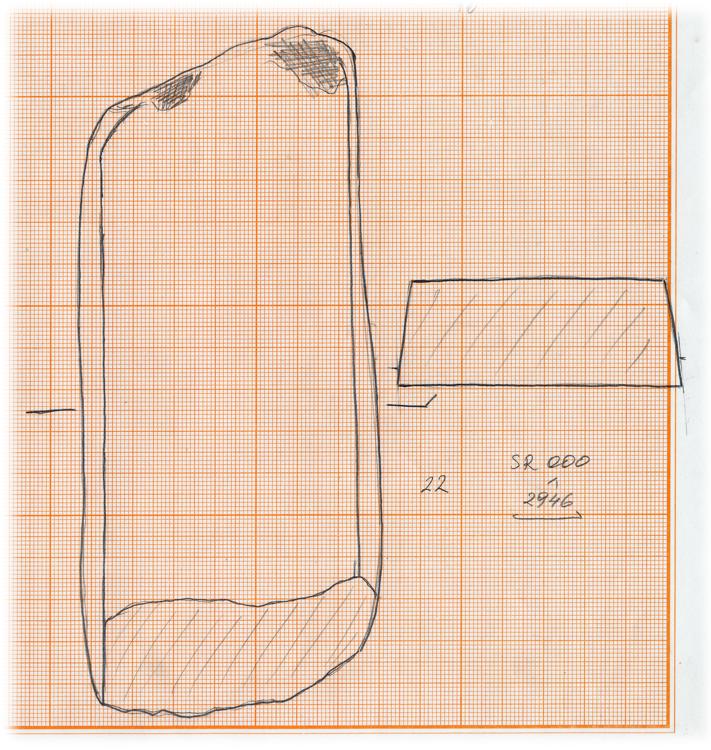 22
SR 000
2946